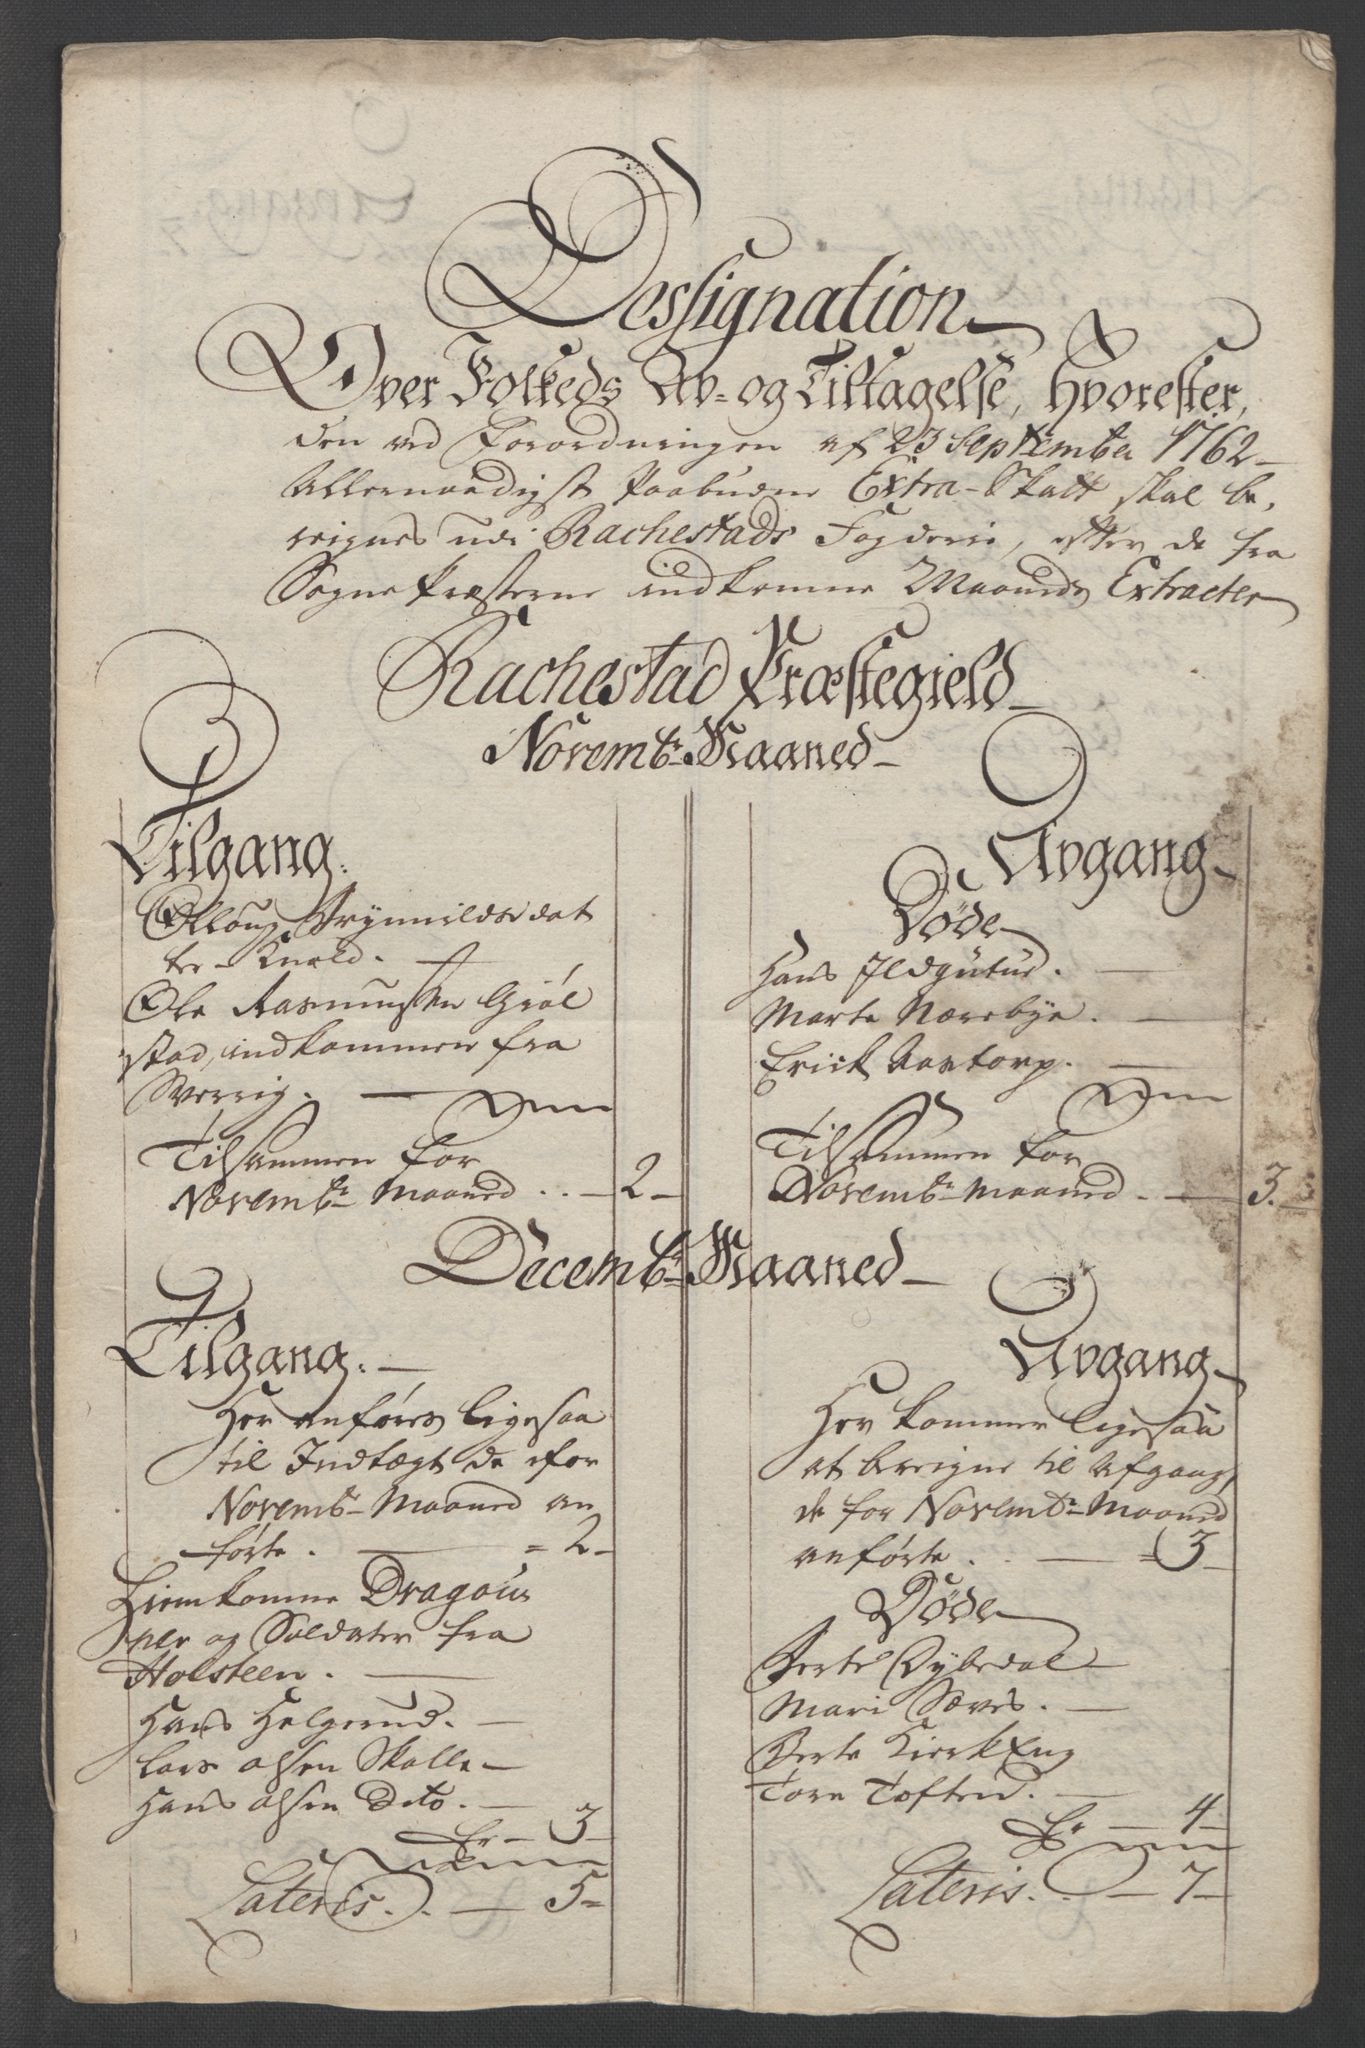 Dessignation
Over Folkeds Av- og Tiltagelse, hvorefter,
den ved Forordningen af 23 September 1762
Allernaadigst Paabudne Extra-Skatt skal be,
reignes udi Rachestads Fogderie, efter de fra
Sogne Præsterne indkomne Maaneds Extracter
Rachestad Præstegield
Novembr Maaned
Tilgang.
Brynnildsdat
ter
Ole Rasmussen Giøl
stad, indkommen fra
Sverrig.
Tilsammen for
Novembr Maaned .. 2
Avgang
Døde
Hans Ildgutud.
Marte Nærebye.
Erick Aastorp.
Tilsammen for
Novembr Maaned. 3.
Decembr Maaned
Tilgang.
Her anføres ligesaa
til Indtægt de for
Novembr Maaned an
førte. = 2
Hiemkomne Dragou
ner og Soldater fra
Holsteen.
Hans Helgerud.
Lars Olsen Skolle
Hans Olsen Dito.
Er 3
Lateris. . 5=
Avgang
Her kommer ligesaa
at bereigne til Afgang,
de for Novembr Maaned
anførte. . = 3
Døde
Berte Dybedal
Mari Sæves.
Berte KierkEng
Tore Toftrud.
Er 4
Lateris. . 7